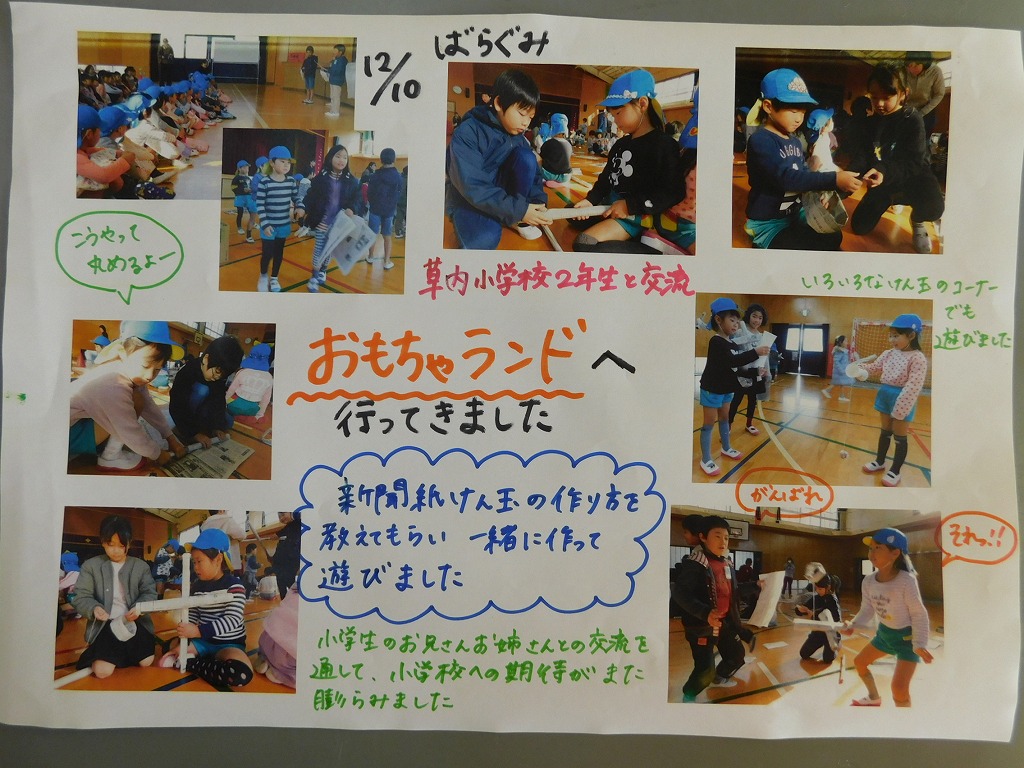 12/10
ばらぐみ
こうやって
丸めるよー
草内小学校2年生と交流
いろいろなけん玉のコーナー
でも
遊びました
おもちゃランドへ
行ってきました
がんばれ
それっ!!
新聞紙けん玉の作り方を
教えてもらい 一緒に作って
遊びました
小学生のお兄さんお姉さんとの交流を
通して、小学校への期待がまた
膨らみました